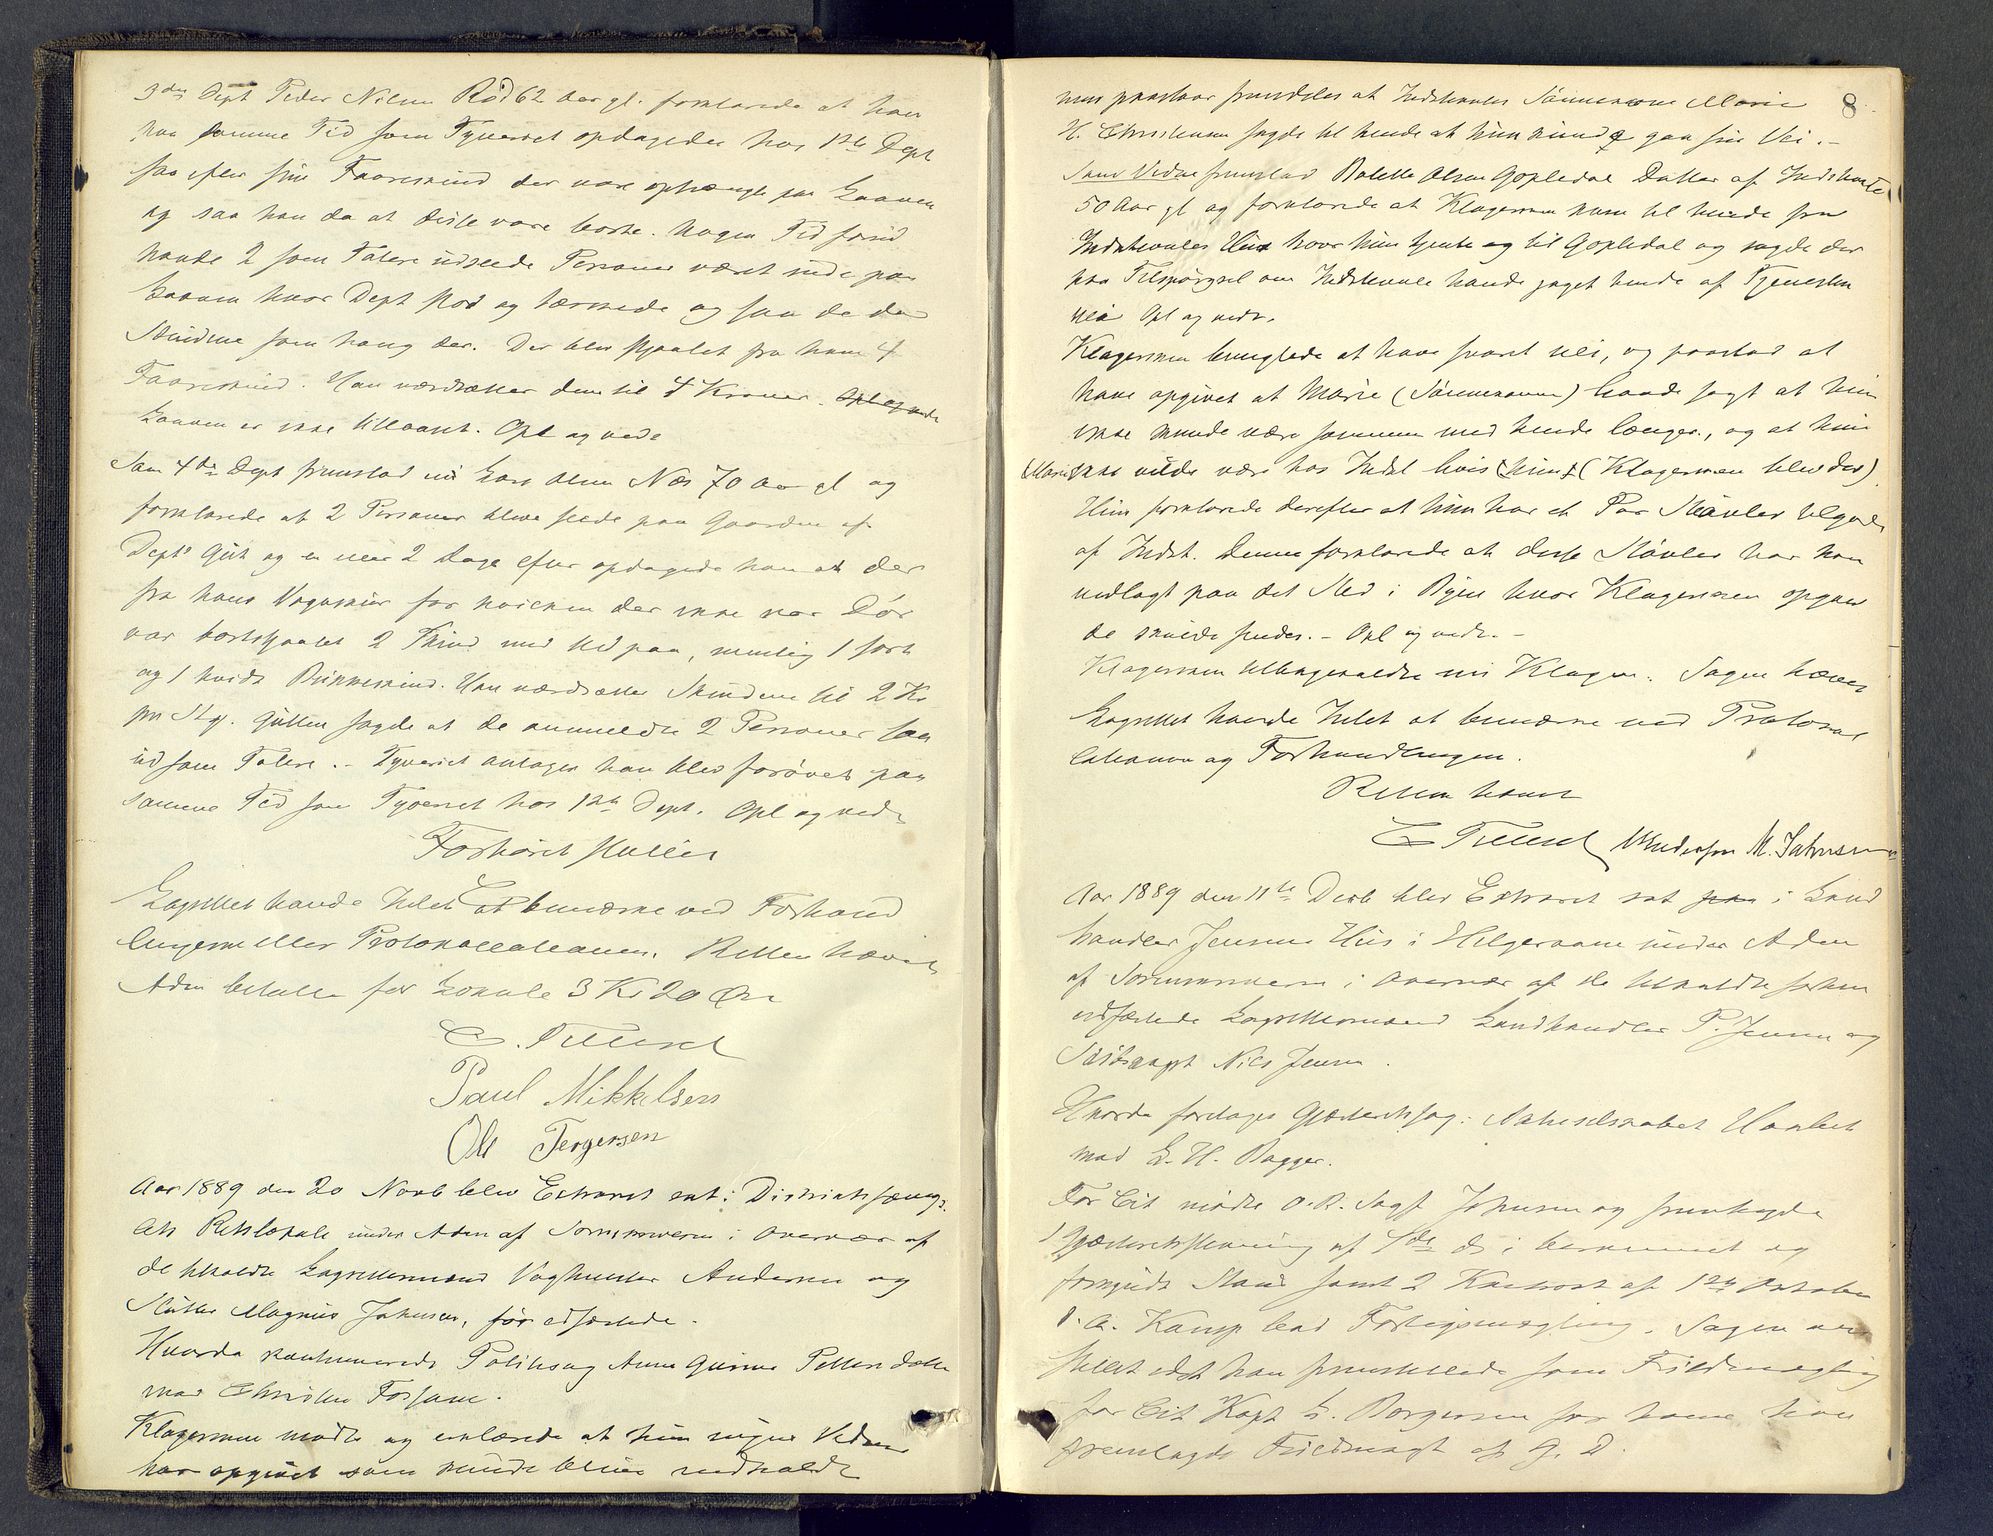 3die Dept Peder Nilsen Rød 62 Aar gl. forklarede at han
paa samme Tid som Tyveriet opdagedes hos 1ste Dept
saa efter sine Faareskind der vare ophængt paa Laaven
og saa han da at disse vare borte. Nogen Tid forud
havde 2 som Tatere udseede Personer været inde paa
Laaven hvor Dept stod og tærskede og saa de da
Skindene som hang der. Der blev stjaalet fra ham 4
Faareskind. Han værdsætter dem til 4 Kroner. Opl og vedt
Laaven er ikke tillaaset. Opl og vedt
Som 4de Dept fremstod nu Lars Olsen Næs 70 Aar gl og
forklarede at 2 Personer bleve seede paa Gaarden af
Depts Gut og en eller 2 Dage efter opdagede han at der
fra hans Vognskur for hvilken der ikke var Dør
var bortstjaalet 2 Skind med Uld paa, nemlig 1 sort
og 1 hvidt Bukkeskind. Han værdsætter Skindene til 2 Kr
pr Stk. Gutten sagde at de anmeldte 2 Personer saa
ud som Tatere. - Tyveriet antager han blev forøvet paa
samme Tid som Tyveriet hos 1ste Dept. Opl og vedt
Forhøret sluttet
Lagrettet havde Intet at bemærke ved Forhand
lingerne eller Protokollationen. Retten hævet
Aden betalte for Lokale 3 Kr 20 Øre
Paul Mikkelsen
Ole Tergersen
Aar 1889 den 20 Novb blev Extraret sat i Distriktsfængs-
lets Retslokale under Aden af Sorenskriveren i Overvær af
de tilkaldte Lagrettesmænd Vognmester Andersen og
Slutter Magnus Johnsen, før edfæstede.
Hvorda kontinuerede Politisag Anne Gurine Pettersdatter
mod Christen Forsane.
Klagersken mødte og erklærede at hun ingen Vidner
har opgivet som kunde blive indkaldt
8
men paastaar fremdeles at Indstevntes Sønnekone Marie
H. Christensen sagde til hende at hun kunde gaa sin Vei. -
Som Vidne fremstod Bolette Olsen Gopledal Datter af Indstevnte
50 Aar gl og forklarede at Klagersken kom til hende fra
Indstevntes Hus hvor hun tjente og til Gopledal og sagde der
paa Tilspørgsel om Indstevnte havde jaget hende af Tjenesten
nei Opl og vedt.
Klagersken benegtede at have svaret nei, og paastod at
have opgivet at Marie (Sønnekonen) havde sagt at hun
ikke kunde være sammen med hende længer, og at hun
(Marie) ikke vilde være hos Indst hvis hun (Klagersken blev der)
Hun forklarede derefter at hun har et Par Støvler tilgode
af Indst. Denne forklarede at disse Støvler har han
nedlagt paa det Sted i Byen hvor Klagersken opgav
de skulde sendes. - Opl og vedt. -
Klagersken tilbagekaldte nu Klagen. Sagen hæves
Lagrettet havde Intet at bemærke ved Protokol
lationen og Forhandlingen.
Retten hævet
Andersen M. Johnsen
Aar 1889 den 11te Decb blev Extraret sat paa i Land
handler Jensens Hus i Helgeroaen under Aden
af Sorenskriveren i Overvær af de tilkaldte forhen
edfæstede Lagrettesmænd Landhandler P. Jensen og
Skibskapt Nils Jensen.
Hvorda foretages Gjæsteretssag: Aktieselskabet Haabet
mod L. H. Bagger.
For Cit mødte O.R. Sagf Johnsen og fremlagde
Gjæsteretsstevning af 7de ds i beskrevet og
forkyndt Stand samt 2 af 1ste Oktober
d. A. Kamp bad Forligsmægling. Sagen
for Cit Kapt L. Borgersen for hvem han
fremlagde Fuldmagt af G. D.